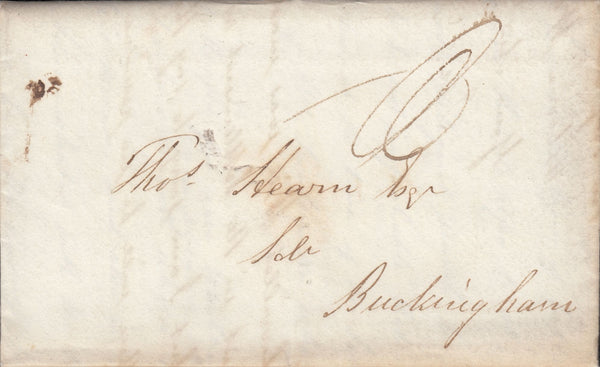 Thos. Hearn Esqr
Buckingham